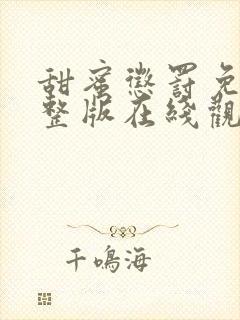 甜蜜懲罰免
整版在綫觀
千鳴海